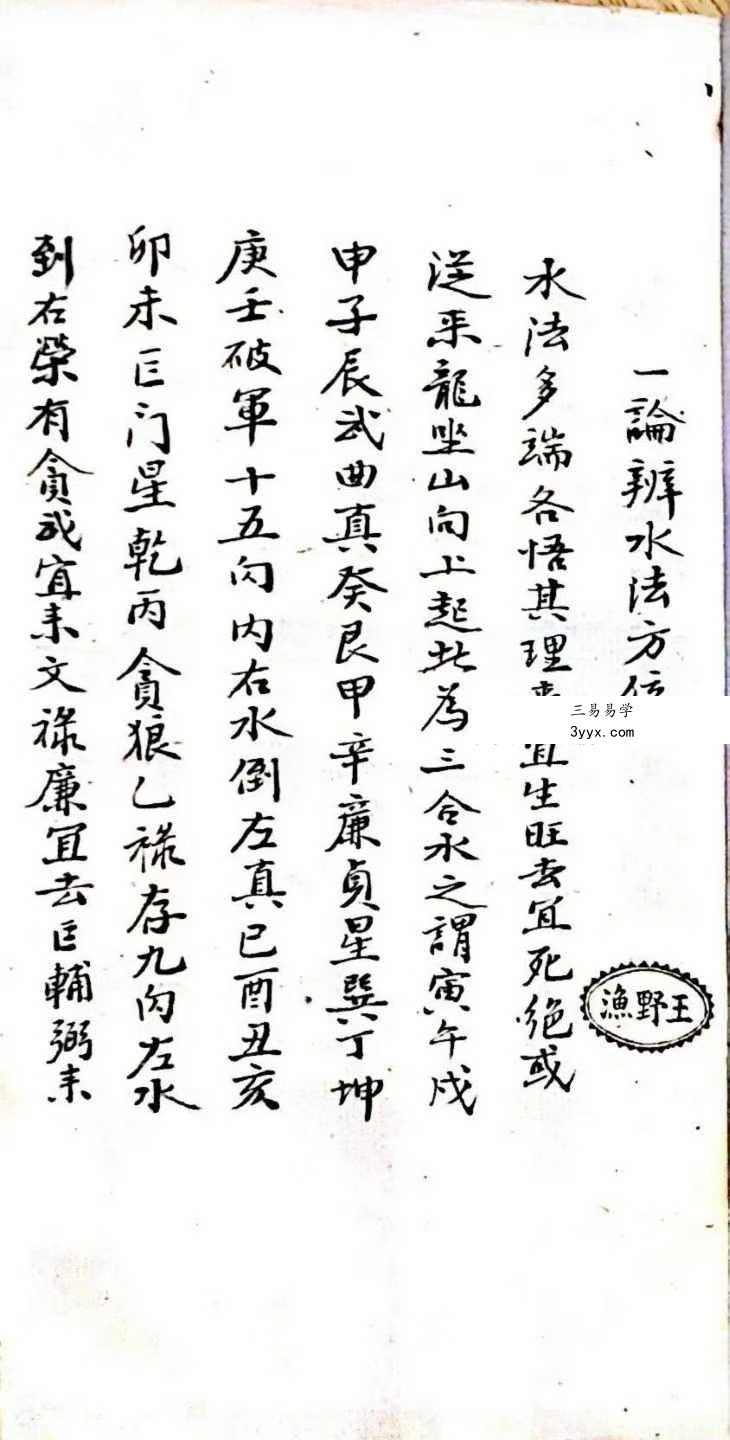 一論辨水法方位
水法多端各悟其理來宜生旺去宜死絶或
從来龍坐山向上起此為三合水之謂寅午戌
申子辰武曲真癸艮甲辛廉貞星巽丁坤
庚壬破軍十五向内右水倒左真巳酉丑亥
卯未巨门星乾丙貪狼乙禄存九向左水
到右榮有貪武宜来文禄廉宜去巨輔弼来
三易易学
3yyx.com
漁野王